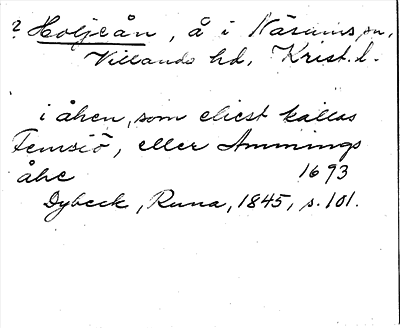 ? Holjeån, å i Näsums sn,
Villands hd, Krist. l.
i åhen, som eliest kallas
Femsiö, eller Ammings
åhe 1693
Dybeck, Runa, 1845, s. 101.